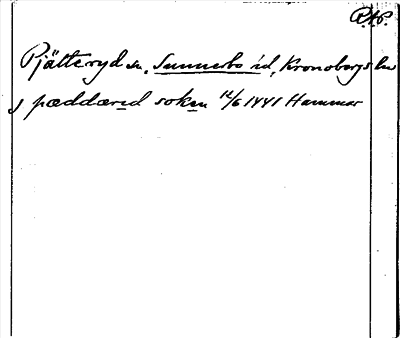 R.A.P.
Pjätteryd sn, Sunnerbo hd, Kronobergs län
j pæddærid soken 12/6 1441 Hammar